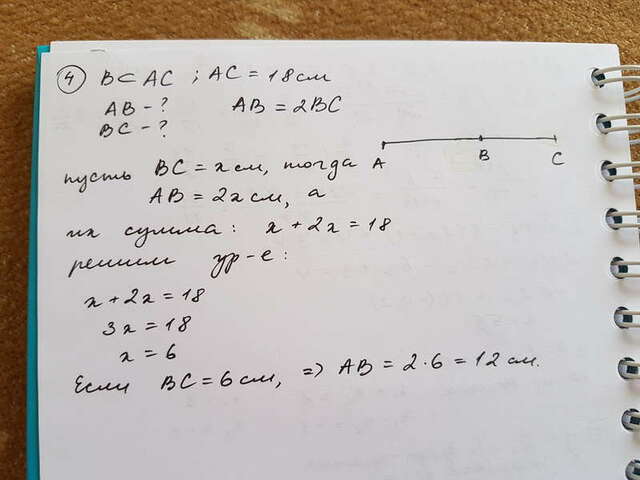 4 B ⊂ AC ; AC = 18 см
AB - ? AB = 2BC
BC - ?
A B C
пусть BC = x см, тогда
AB = 2x см, а
их сумма: x + 2x = 18
решим ур-е:
x + 2x = 18
3x = 18
x = 6
Если BC = 6 см, => AB = 2·6 = 12 см.